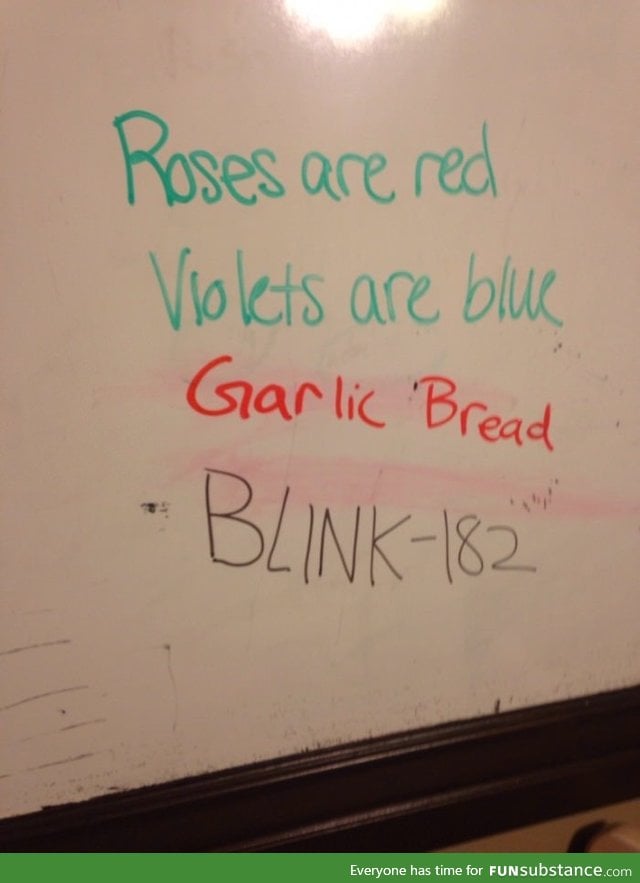 Roses are red
Violets are blue
Garlic Bread
BLINK-182
Everyone has time for FUNsubstance.com